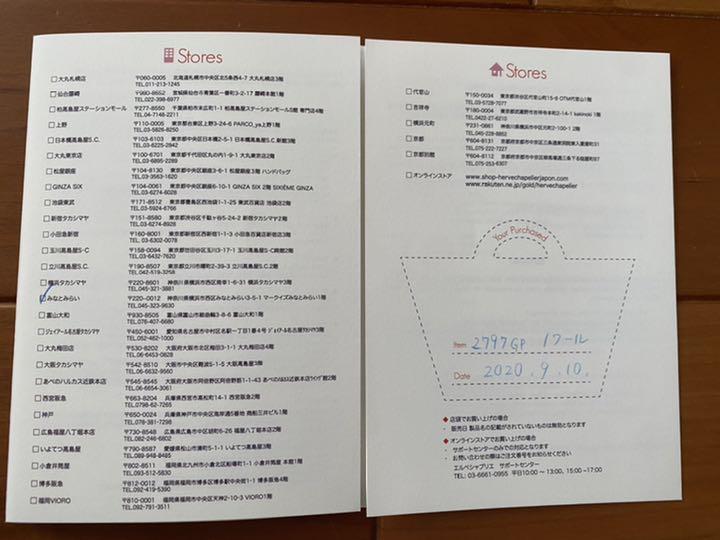 Stores
大丸札幌店 〒060-0005 北海道札幌市中央区北5条西4-7 大丸札幌店3階
TEL.011-213-1245
仙台藤崎 〒980-8652 宮城県仙台市青葉区一番町3-2-17 藤崎本館1階
TEL.022-398-6977
柏髙島屋ステーションモール 〒277-8550 千葉県柏市末広町1-1 柏髙島屋ステーションモールS館 専門店4階
TEL.04-7148-2211
上野 〒110-0005 東京都台東区上野3-24-6 PARCO_ya上野1階
TEL.03-5826-8250
日本橋髙島屋S.C. 〒103-6105 東京都中央区日本橋2-5-1 日本橋髙島屋S.C.新館3階
TEL.03-6225-2942
大丸東京店 〒100-6701 東京都千代田区丸の内1-9-1 大丸東京店2階
TEL.03-6895-2289
松屋銀座 〒104-8130 東京都中央区銀座3-6-1 松屋銀座3階 ハンドバッグ
TEL.03-3563-1620
GINZA SIX 〒104-0061 東京都中央区銀座6-10-1 GINZA SIX 2階 SIXIÈME GINZA
TEL.03-6274-6028
池袋東武 〒171-8512 東京都豊島区西池袋1-1-25 東武百貨店 池袋店2階
TEL.03-5924-6766
新宿タカシマヤ 〒151-8580 東京都渋谷区千駄ヶ谷5-24-2 新宿タカシマヤ2階
TEL.03-6274-8928
小田急新宿 〒160-8001 東京都新宿区西新宿1-1-3 小田急百貨店新宿3階
TEL.03-6302-0078
玉川髙島屋S・C 〒158-0094 東京都世田谷区玉川3-17-1 玉川髙島屋S・C南館2階
TEL.03-6432-7620
立川髙島屋S.C. 〒190-8507 東京都立川市曙町2-39-3 立川髙島屋S.C.2階
TEL.042-519-3258
横浜タカシマヤ 〒220-8601 神奈川県横浜市西区南幸1-6-31 横浜タカシマヤ3階
TEL.045-321-3881
みなとみらい 〒220-0012 神奈川県横浜市西区みなとみらい3-5-1 マークイズみなとみらい1階
TEL.045-323-9630
富山大和 〒930-8505 富山県富山市総曲輪3-8-6 富山大和1階
TEL.076-407-6680
ジェイアール名古屋タカシマヤ 〒450-6001 愛知県名古屋市中村区名駅一丁目1番4号 ジェイアール名古屋タカシマヤ3階
TEL.052-462-1000
大丸梅田店 〒530-8202 大阪府大阪市北区梅田3-1-1 大丸梅田店4階
TEL.06-6453-0828
大阪タカシマヤ 〒542-8510 大阪府大阪市中央区難波5-1-5 大阪髙島屋3階
TEL.06-6632-9560
あべのハルカス近鉄本店 〒545-8545 大阪府大阪市阿倍野区阿倍野筋1-1-43 あべのハルカス近鉄本店ウイング館2階
TEL.06-6654-3061
西宮阪急 〒663-8204 兵庫県西宮市高松町14-1 西宮阪急2階
TEL.0798-62-7265
神戸 〒650-0024 兵庫県神戸市中央区海岸通5番地 商船三井ビル1階
TEL.078-381-7298
広島福屋八丁堀本店 〒730-8548 広島県広島市中区胡町6-26 福屋八丁堀本店2階
TEL.082-246-6802
いよてつ髙島屋 〒790-8587 愛媛県松山市湊町5-1-1 いよてつ髙島屋3階
TEL.089-948-8485
小倉井筒屋 〒802-8511 福岡県北九州市小倉北区船場町1-1 小倉井筒屋 本館1階
TEL.093-512-5830
博多阪急 〒812-0012 福岡県福岡市博多区博多駅中央街1-1 博多阪急4階
TEL.092-419-5390
福岡VIORO 〒810-0001 福岡県福岡市中央区天神2-10-3 VIORO1階
TEL.092-791-3511
Stores
代官山 〒150-0034 東京都渋谷区代官山町15-8 OTM代官山1階
TEL.03-5728-7077
吉祥寺 〒180-0004 東京都武蔵野市吉祥寺本町2-14-1 kakinoki 1階
TEL.0422-27-6210
横浜元町 〒231-0861 神奈川県横浜市中区元町2-100-1 2階
TEL.045-228-8852
京都 〒604-8131
TEL.075-222-7227
京都別館 〒604-8112
TEL.075-253-6307
オンラインストア www.shop-hervechapelierjapon.com
www.rakuten.ne.jp/gold/hervechapelier
Your Purchased
Item 2797GP 1フール
Date 2020.9.10.
◆店頭でお買い上げの場合
・販売日 製品名の記載がされていないものは無効となります
◆オンラインストアでお買い上げの場合
・サポートセンターのみでの対応となります
・お問い合わせの際はご注文番号をお知らせください
エルベシャプリエ サポートセンター
TEL: 03-6661-0955 平日10:00〜13:00, 15:00〜17:00